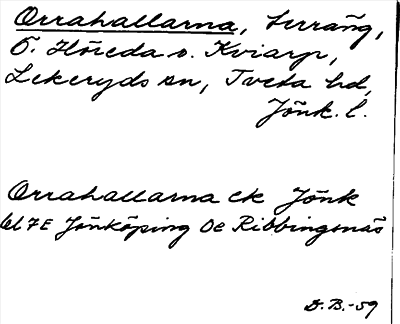 Orrahallarna, terräng,
Ö. Höreda o. Kviarp,
Lekeryds sn, Tveta hd,
Jönk. l.
Orrahallarna ek Jönk
bl 7E Jönköping Öe Ribbingsnäs
D. B. -59